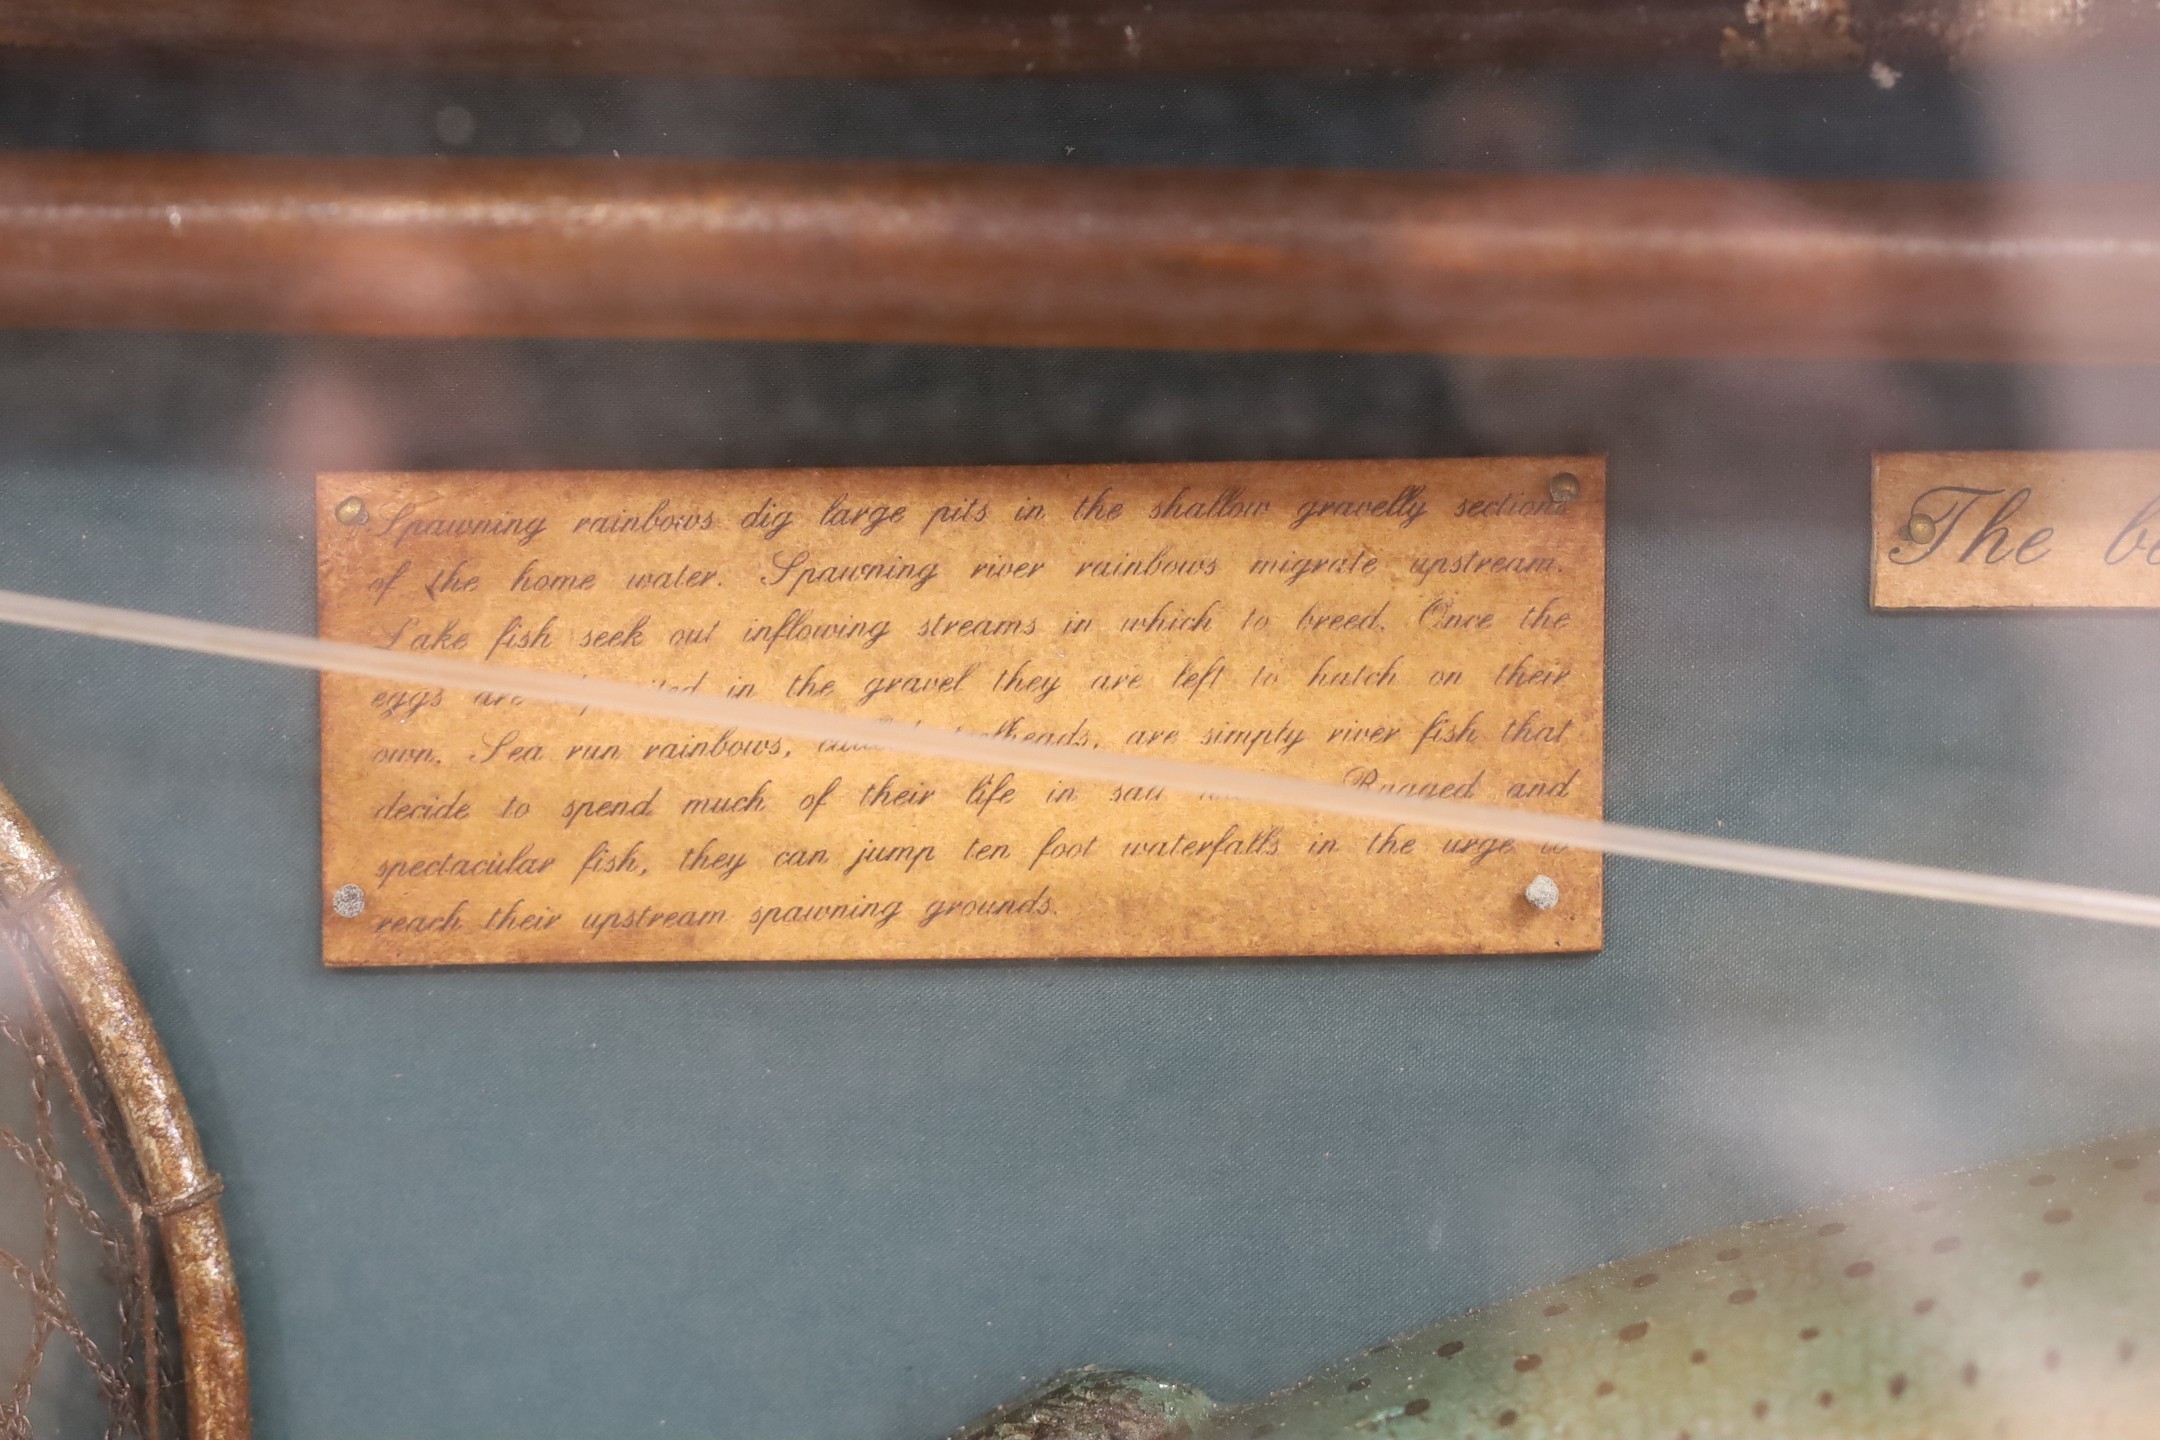 Spawning rainbows dig large pits in the shallow gravelly sections
of the home water. Spawning river rainbows migrate upstream.
Lake fish seek out inflowing streams in which to breed. Once the
eggs are in the gravel they are left to hatch on their
own. Sea run rainbows, called steelheads, are simply river fish that
decide to spend much of their life in salt Rugged and
spectacular fish, they can jump ten foot waterfalls in the urge to
reach their upstream spawning grounds.
The